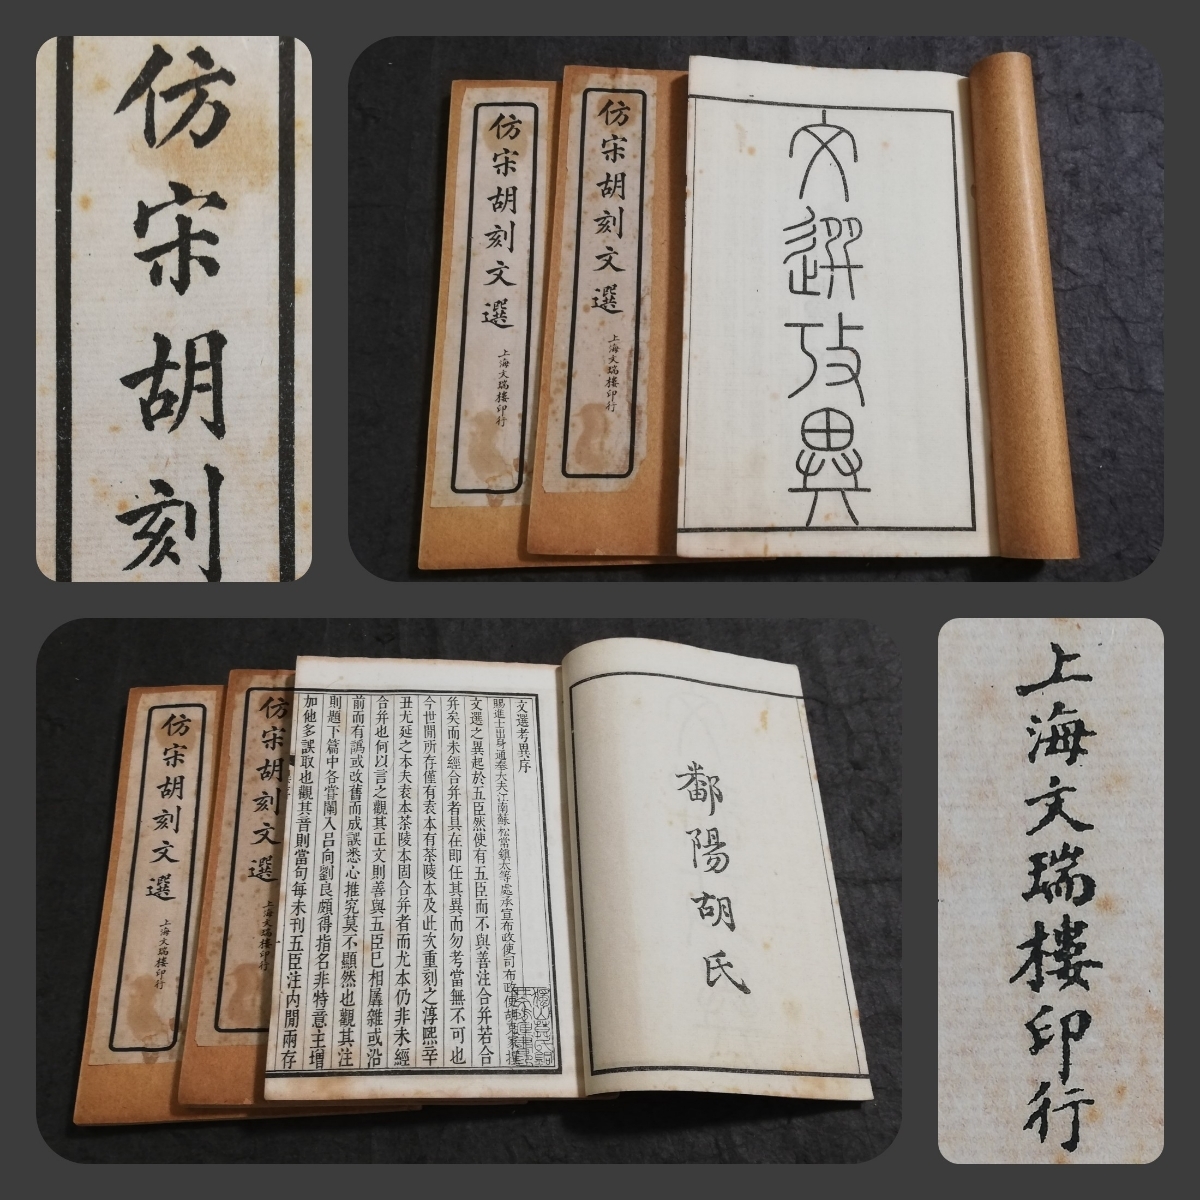 仿宋胡刻
仿宋胡刻文選
上海文瑞樓印行
仿宋胡刻文選
上海文瑞樓印行
文選攷異
鄱陽胡氏
文選考異序
賜進士出身通奉大夫江南蘇松常鎮太等處承宣布政使司布政使胡克家撰
文選之異起於五臣然使有五臣而不與善注合并若合
并矣而未經合并者具在即任其異而勿考當無不可也
今世閒所存僅有袁本有茶陵本及此次重刻之淳熙辛
丑尤延之本夫袁本茶陵本固合并者而尤本仍非未經
合并也何以言之觀其正文則善與五臣已相羼雜或沿
前而有譌或改舊而成誤悉心推究莫不顯然也觀其注
則題下篇中各嘗闌入呂向劉良頗得指名非特意主增
加他多誤取也觀其音則當句每未刊五臣注内閒兩存
仿宋胡刻文選
上海文瑞樓印行
仿宋胡刻文選
上海文瑞樓印行
上海文瑞樓印行